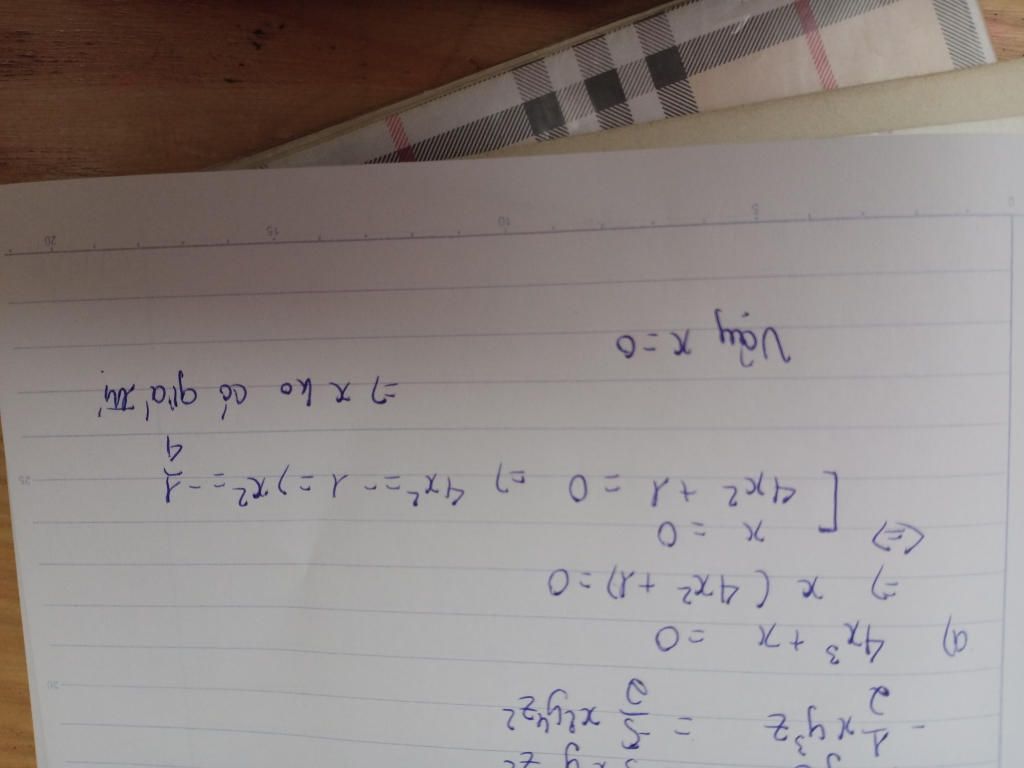 - 1/2 xy³z = 5/2 x²y⁴z²
a) 4x³ + x = 0
=> x (4x² + 1) = 0
<=> [ x = 0
4x² + 1 = 0 => 4x² = -1 => x² = -1/4
=> x ko có giá trị
Vậy x = 0
5 10 15 20
25
30